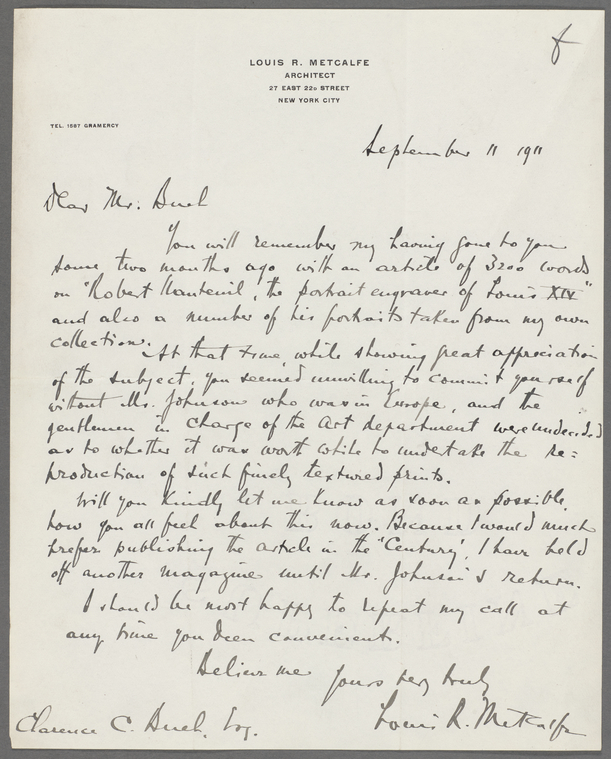 LOUIS R. METCALFE
ARCHITECT
27 EAST 22D STREET
NEW YORK CITY
TEL. 1587 GRAMERCY
September 11 1911
Dear Mr. Buel
You will remember my having gone to you
some two months ago with an article of 3200 words
on "Robert Nanteuil, the portrait engraver of Louis XIV"
and also a number of his portraits taken from my own
collection.
At that time, while showing great appreciation
of the subject, you seemed unwilling to commit yourself
without Mr. Johnson who was in Europe, and the
gentlemen in charge of the Art department were undecided
as to whether it was worth while to undertake the re=
production of such finely textured prints.
Will you kindly let me know as soon as possible
how you all feel about this now. Because I would much
prefer publishing the article in the "Century", I have held
off another magazine until Mr. Johnson's return.
I should be most happy to repeat my call at
any time you deem convenient.
Believe me
Yours very truly
Louis R. Metcalfe
Clarence C. Buel, Esq.